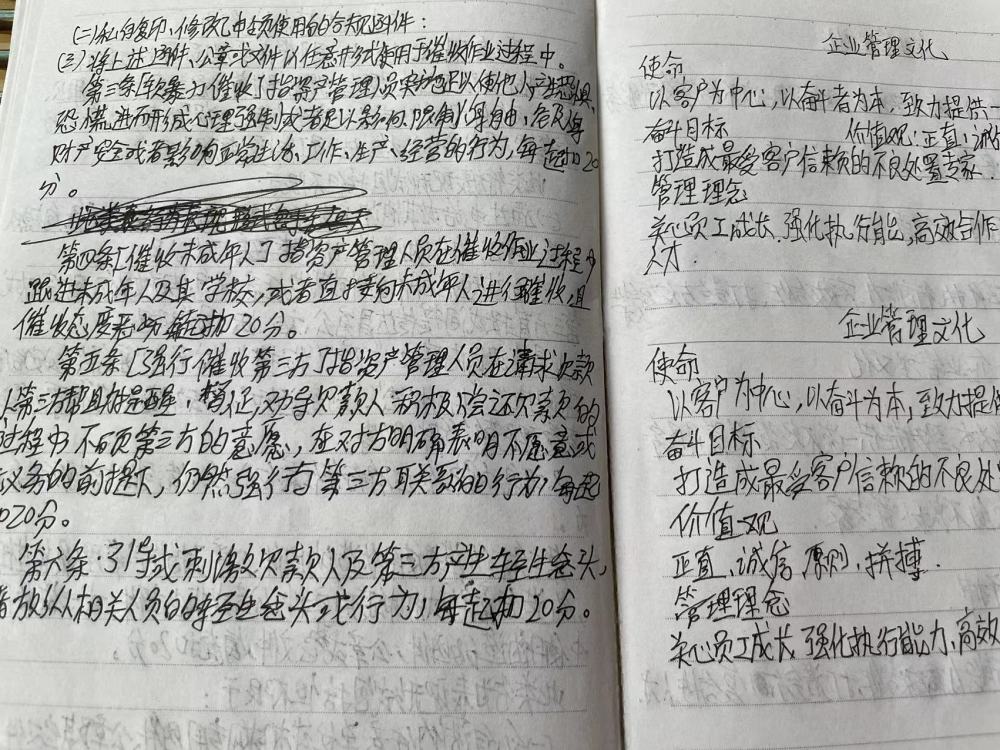 (二)私自复印、修改、申领使用的合规函件:
(三)将上述函件、公章或文件以任意形式使用于催收作业过程中。
第三条「软暴力催收」指资产管理人员实施足以使他人产生恐惧、
恐慌进而形成心理强制或者足以影响、限制人身自由、危及人身
财产安全或者影响正常生活、工作、生产、经营的行为,每起扣20
分。
第四条「催收未成年人」指资产管理人员在催收作业过程中
跟进未成年人及其学校,或者直接向未成年人进行催收,且
催收态度恶劣 每起扣20分。
第五条「强行催收第三方」指资产管理人员在请求欠款
人第三方帮助提醒、督促,劝导欠款人积极偿还欠款的
过程中不顾第三方的意愿,在对方明确表明不愿意或
义务的前提下,仍然强行与第三方联系的行为,每起
扣20分。
第六条:引导或刺激欠款人及第三方产生轻生念头,
放纵相关人员的轻生念头或行为,每起扣20分。
企业管理文化
使命
以客户为中心,以奋斗者为本,致力提供一
奋斗目标 价值观:正直、诚
打造成最受客户信赖的不良处置专家.
管理理念
关心员工成长、强化执行能,高效合作
人才.
企业管理文化
使命
以客户为中心,以奋斗为本,致力提供
奋斗目标
打造成最受客户信赖的不良处
价值观
正直、诚信、原则、拼搏.
管理理念
关心员工成长 强化执行能力、高效